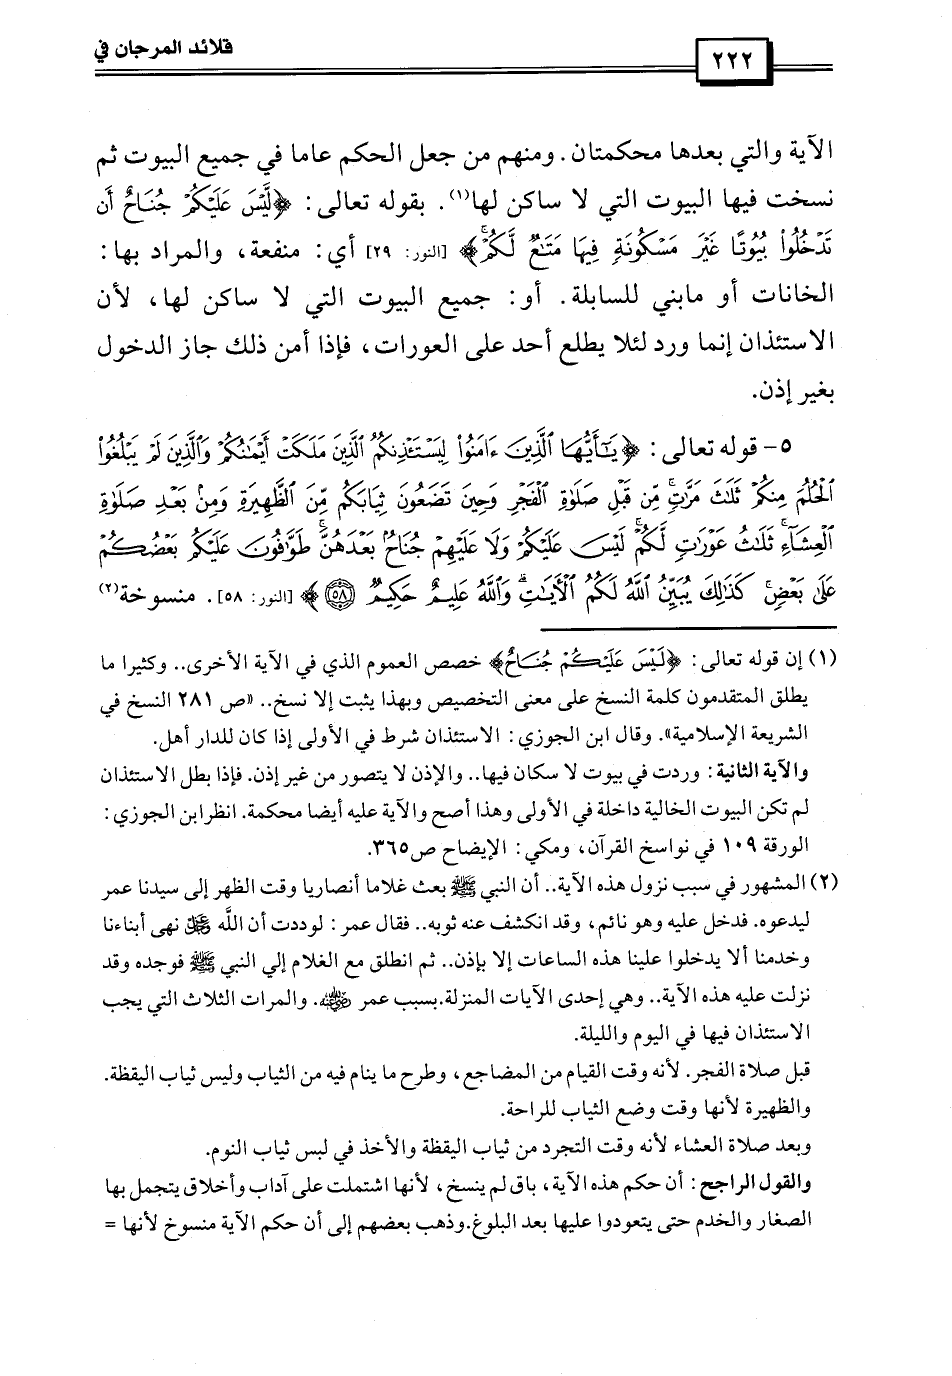 قلائد المرجان في
٢٢٢
الآية والتي بعدها محكمتان. ومنهم من جعل الحكم عاما في جميع البيوت ثم
نسخت فيها البيوت التي لا ساكن لها(١). بقوله تعالى: ﴿لَّيْسَ عَلَيْكُمْ جُنَاحٌ أَن
تَدْخُلُوا۟ بُيُوتًا غَيْرَ مَسْكُونَةٍ فِيهَا مَتَـٰعٌ لَّكُمْ ۚ﴾ [النور: ٢٩] أي: منفعة، والمراد بها:
الخانات أو مابني للسابلة. أو: جميع البيوت التي لا ساكن لها، لأن
الاستئذان إنما ورد لئلا يطلع أحد على العورات، فإذا أمن ذلك جاز الدخول
بغير إذن.
٥- قوله تعالى: ﴿يَـٰٓأَيُّهَا ٱلَّذِينَ ءَامَنُوا۟ لِيَسْتَـْٔذِنكُمُ ٱلَّذِينَ مَلَكَتْ أَيْمَـٰنُكُمْ وَٱلَّذِينَ لَمْ يَبْلُغُوا۟
ٱلْحُلُمَ مِنكُمْ ثَلَـٰثَ مَرَّٰتٍ ۚ مِّن قَبْلِ صَلَوٰةِ ٱلْفَجْرِ وَحِينَ تَضَعُونَ ثِيَابَكُم مِّنَ ٱلظَّهِيرَةِ وَمِنۢ بَعْدِ صَلَوٰةِ
ٱلْعِشَآءِ ۚ ثَلَـٰثُ عَوْرَٰتٍ لَّكُمْ ۚ لَيْسَ عَلَيْكُمْ وَلَا عَلَيْهِمْ جُنَاحٌۢ بَعْدَهُنَّ ۚ طَوَّٰفُونَ عَلَيْكُم بَعْضُكُمْ
عَلَىٰ بَعْضٍ ۚ كَذَٰلِكَ يُبَيِّنُ ٱللَّهُ لَكُمُ ٱلْـَٔايَـٰتِ ۗ وَٱللَّهُ عَلِيمٌ حَكِيمٌ ٥٨﴾ [النور: ٥٨]. منسوخة(٢)
(١) إن قوله تعالى: ﴿لَيْسَ عَلَيْكُمْ جُنَاحٌ﴾ خصص العموم الذي في الآية الأخرى.. وكثيرا ما
يطلق المتقدمون كلمة النسخ على معنى التخصيص وبهذا يثبت إلا نسخ.. «ص ٢٨١ النسخ في
الشريعة الإسلامية». وقال ابن الجوزي: الاستئذان شرط في الأولى إذا كان للدار أهل.
والآية الثانية: وردت في بيوت لا سكان فيها.. والإذن لا يتصور من غير إذن. فإذا بطل الاستئذان
لم تكن البيوت الخالية داخلة في الأولى وهذا أصح والآية عليه أيضا محكمة. انظرابن الجوزي:
الورقة ١٠٩ في نواسخ القرآن، ومكي: الإيضاح ص٣٦٥.
(٢) المشهور في سبب نزول هذه الآية.. أن النبي ﷺ بعث غلاما أنصاريا وقت الظهر إلى سيدنا عمر
ليدعوه. فدخل عليه وهو نائم، وقد انكشف عنه ثوبه.. فقال عمر: لوددت أن اللَّه ﷻ نهى أبناءنا
وخدمنا ألا يدخلوا علينا هذه الساعات إلا بإذن.. ثم انطلق مع الغلام إلي النبي ﷺ فوجده وقد
نزلت عليه هذه الآية.. وهي إحدى الآيات المنزلة.بسبب عمر رضي الله عنه. والمرات الثلاث التي يجب
الاستئذان فيها في اليوم والليلة.
قبل صلاة الفجر. لأنه وقت القيام من المضاجع، وطرح ما ينام فيه من الثياب وليس ثياب اليقظة.
والظهيرة لأنها وقت وضع الثياب للراحة.
وبعد صلاة العشاء لأنه وقت التجرد من ثياب اليقظة والأخذ في لبس ثياب النوم.
والقول الراجح: أن حكم هذه الآية، باق لم ينسخ، لأنها اشتملت على آداب وأخلاق يتجمل بها
الصغار والخدم حتى يتعودوا عليها بعد البلوغ.وذهب بعضهم إلى أن حكم الآية منسوخ لأنها =